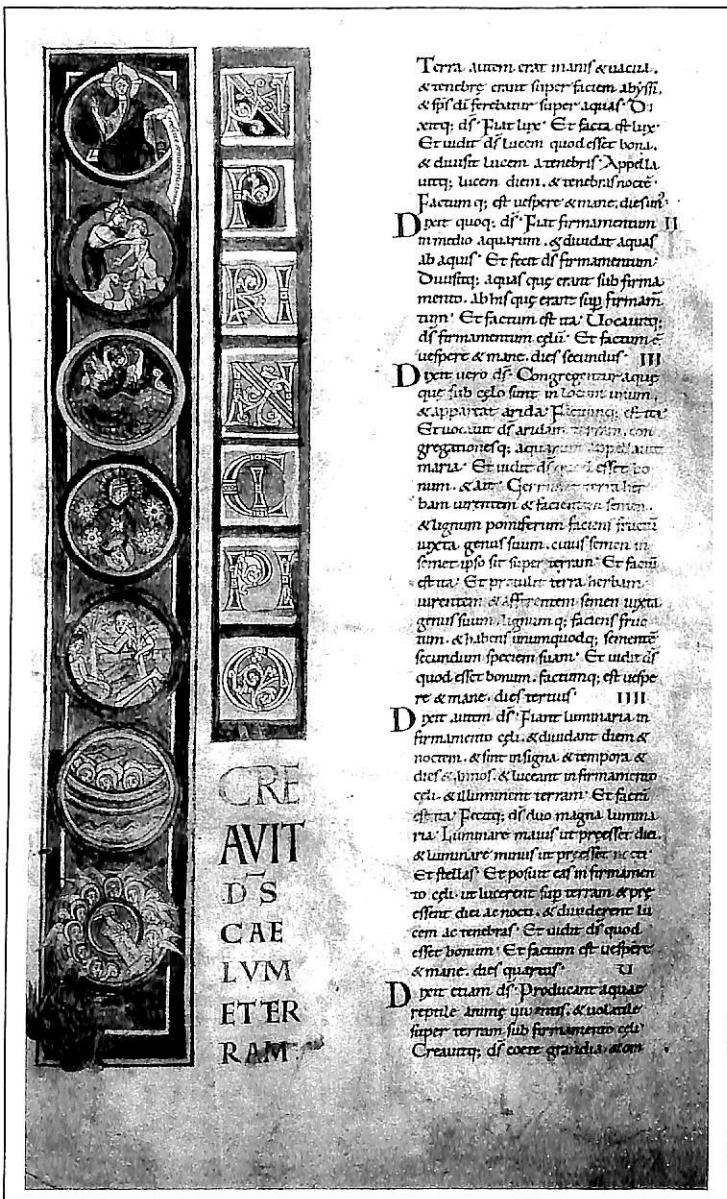 IN
P
RI
N
CI
PI
O
CRE
AVIT
DS
CAE
LVM
ET TER
RAM
Terra autem erat inanis & uacua.
& tenebrę erant super faciem abyssi,
& sp̄s dī ferebatur super aquas. Di
xitq; dš. Fiat lux. Et facta est lux.
Et uidit dš lucem quod esset bona,
& diuisit lucem a tenebris. Appella
uitq; lucem diem, & tenebras noctē.
Factumq; est uespere & mane, dies unꝰ.
Dixit quoq; dš. Fiat firmamentum II
in medio aquarum, & diuidat aquas
ab aquis. Et fecit dš firmamentum.
Diuisitq; aquas quę erant sub firma
mento, ab his quę erant sup firmam̄
tum. Et factum est ita. Uocauitq;
dš firmamentum cęlū. Et factum ē
uespere & mane, dies secundus. III
Dixit uero dš. Congregentur aquę
quę sub cęlo sunt in locum unum,
& appareat arida. Factumq; est ita.
Et uocauit dš aridam terram, con
gregationesq; aquarum appellauit
maria. Et uidit dš quod esset bo
num, & ait. Germinet terra her
bam uirentem & facientem semen,
& lignum pomiferum faciens fructū
iuxta genus suum, cuius semen in
semet ipso sit super terram. Et factū
est ita. Et protulit terra herbam
uirentem & afferentem semen iuxta
genus suum, lignumq; faciens fruc
tum, & habens unumquodq; sementē
secundum speciem suam. Et uidit dš
quod esset bonum, factumq; est uespe
re & mane, dies tertius. IIII
Dixit autem dš. Fiant luminaria in
firmamento cęli, & diuidant diem &
noctem, & sint in signa & tempora &
dies & annos, & luceant in firmamento
cęli, & illuminent terram. Et factū
est ita. Fecitq; dš duo magna lumina
ria. Luminare maius ut preesset diei,
& luminare minus ut preesset nocti.
Et stellas. Et posuit eas in firmamen
to cęli, ut lucerent sup terram & prę
essent diei ac nocti, & diuiderent lu
cem ac tenebras. Et uidit dš quod
esset bonum. Et factum est uespere
& mane, dies quartus. U
Dixit etiam dš. Producant aquae
reptile animę uiuentis, & uolatile
super terram sub firmamento cęli.
Creauitq; dš coete grandia, & om